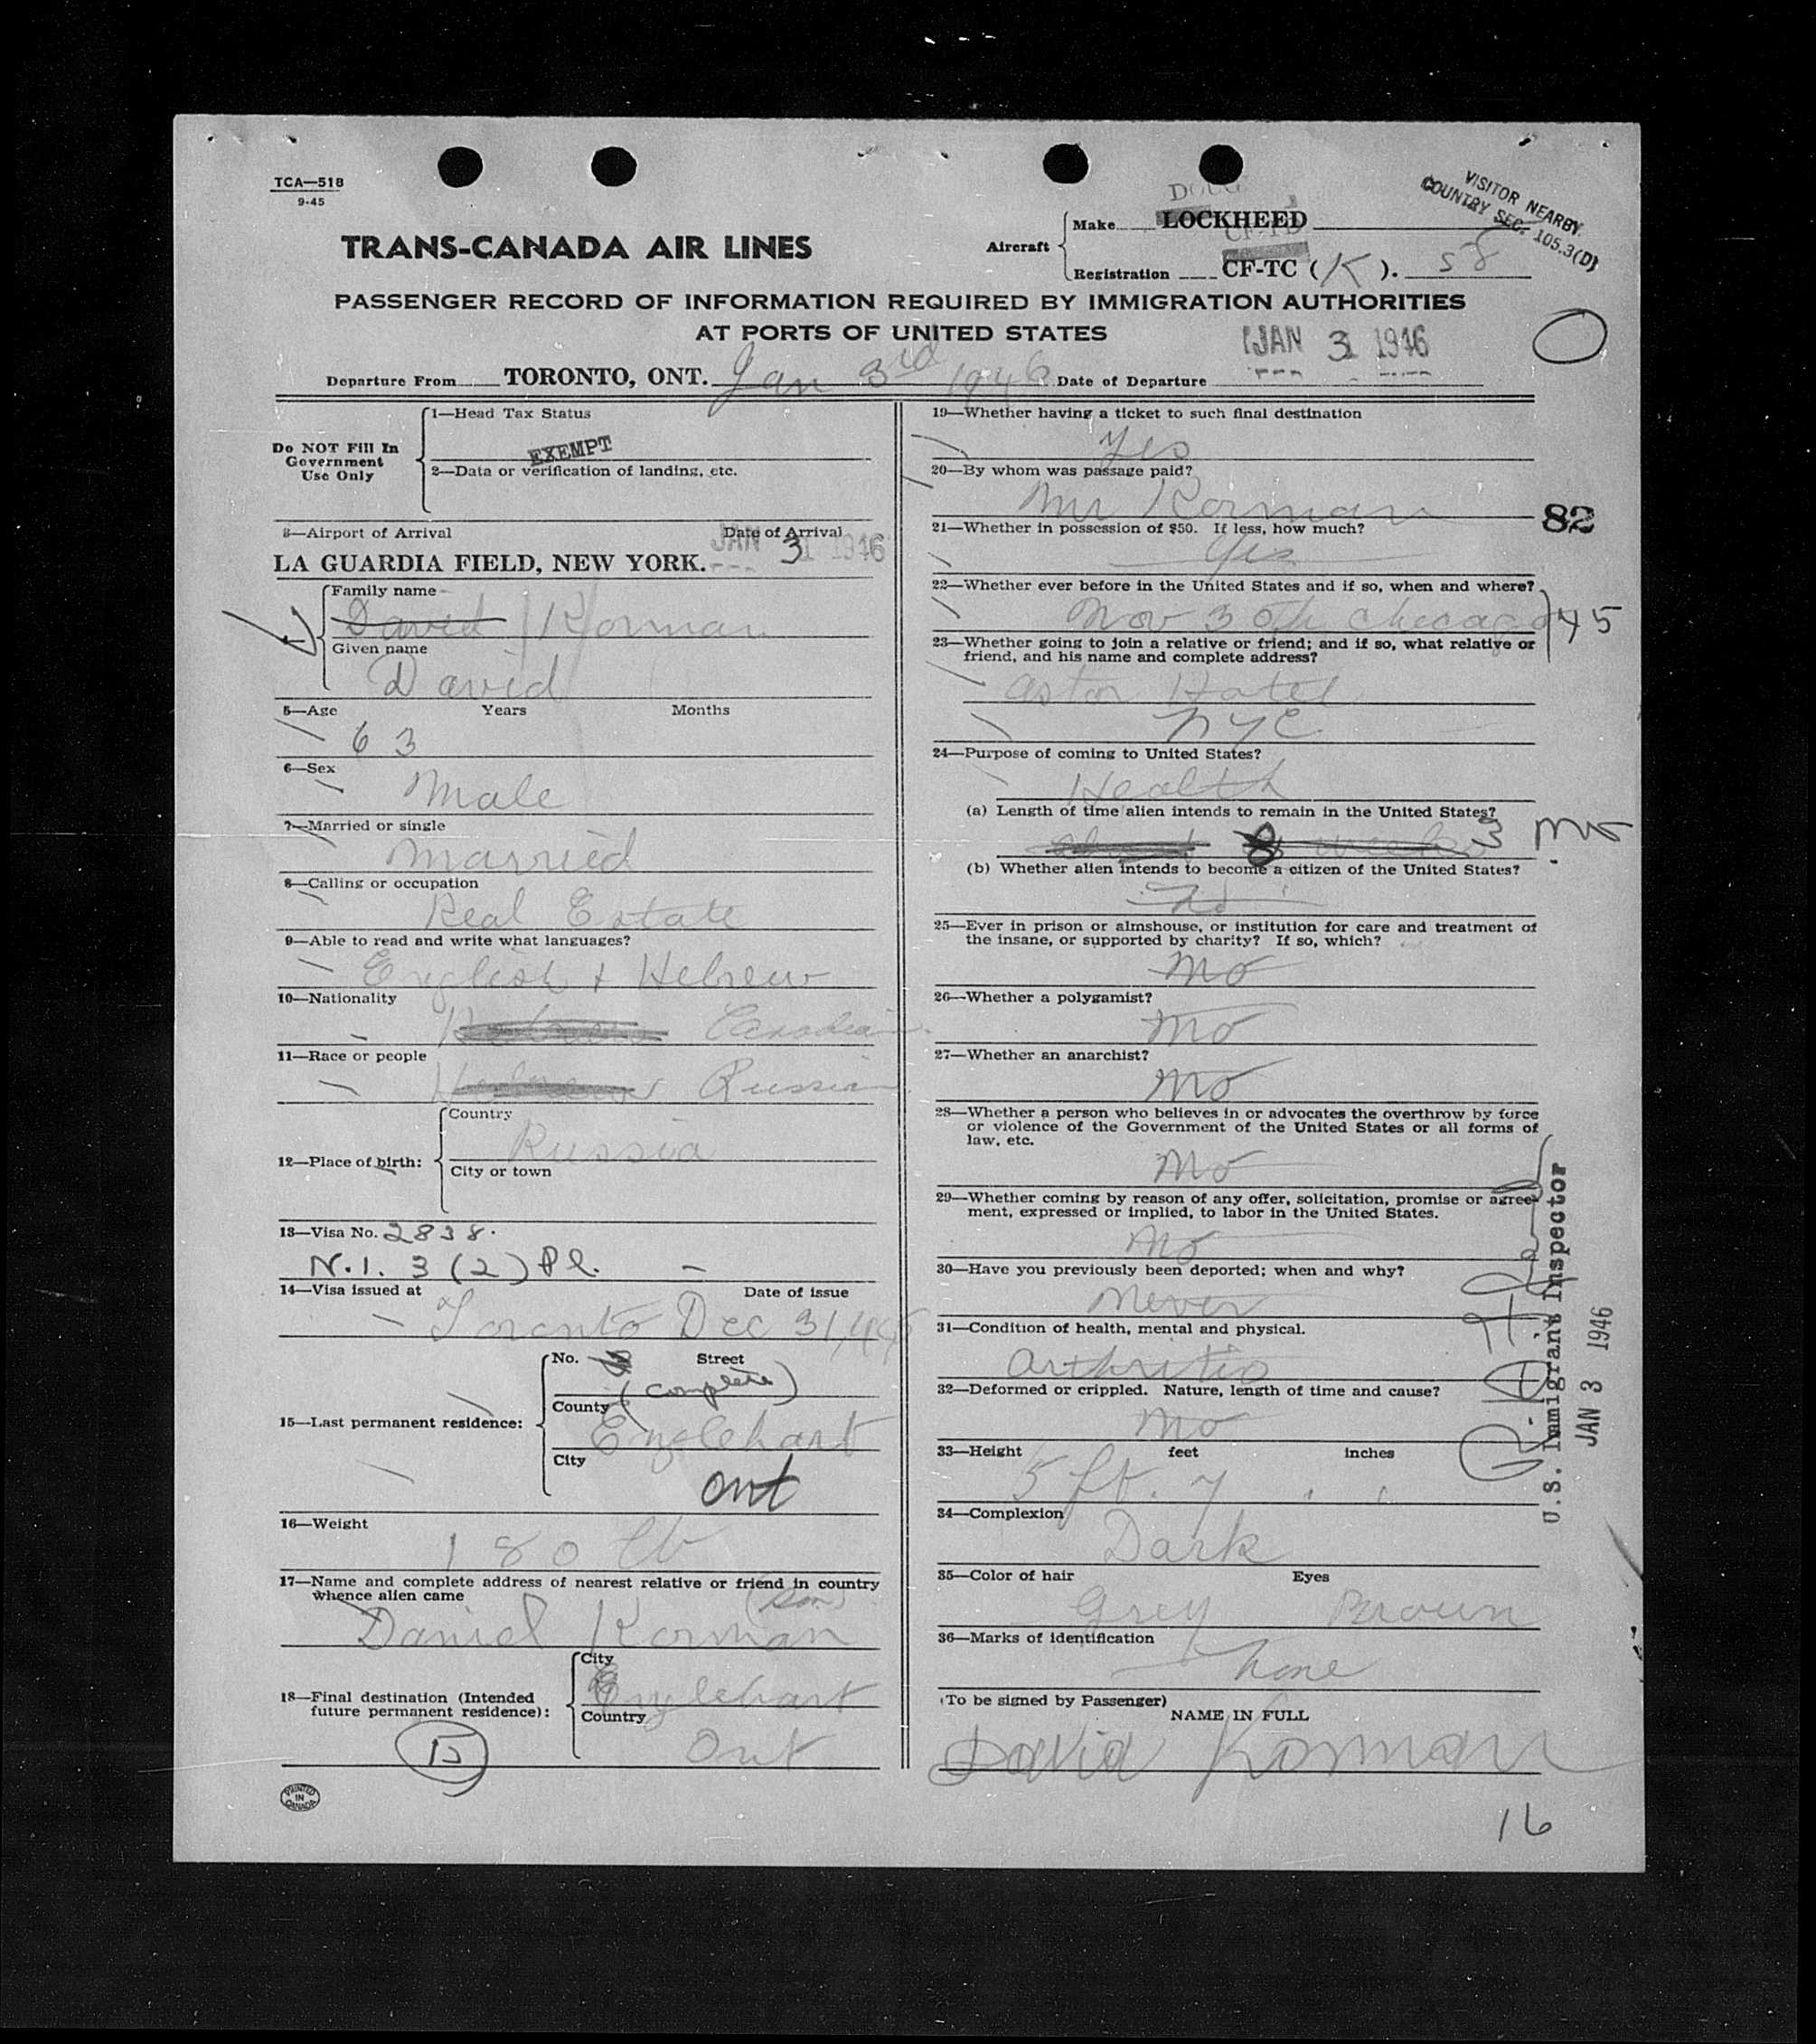 TCA—518
9-45
VISITOR NEARBY
COUNTRY SEC. 105.3(D)
TRANS-CANADA AIR LINES
Aircraft
Make LOCKHEED
Registration CF-TC (K). 58
PASSENGER RECORD OF INFORMATION REQUIRED BY IMMIGRATION AUTHORITIES
AT PORTS OF UNITED STATES
JAN 3 1946
Departure From TORONTO, ONT. Jan 3rd 1946 Date of Departure
Do NOT Fill In
Government
Use Only
1—Head Tax Status
EXEMPT
2—Data or verification of landing, etc.
3—Airport of Arrival Date of Arrival
LA GUARDIA FIELD, NEW YORK. JAN 3 1946
Family name
David Korman
Given name
David
5—Age Years Months
63
6—Sex
Male
7—Married or single
Married
8—Calling or occupation
Real Estate
9—Able to read and write what languages?
English + Hebrew
10—Nationality
Canadian
11—Race or people
Hebrew Russian
12—Place of birth:
Country
Russia
City or town
13—Visa No. 2838.
N.I. 3 (2) Pl. –
14—Visa issued at Date of issue
Toronto Dec 31, 45
15—Last permanent residence:
No. Street
(complete)
County
Englehart
City
Ont
16—Weight
180 lb
17—Name and complete address of nearest relative or friend in country
whence alien came
(Son)
Daniel Korman
18—Final destination (Intended
future permanent residence):
City
Englehart
Country
Ont
PRINTED
IN
CANADA
19—Whether having a ticket to such final destination
Yes
20—By whom was passage paid?
Mr Korman
82
21—Whether in possession of $50. If less, how much?
Yes
22—Whether ever before in the United States and if so, when and where?
Nov 30th Chicago 45
23—Whether going to join a relative or friend; and if so, what relative or
friend, and his name and complete address?
Astor Hotel
NYC
24—Purpose of coming to United States?
Health
(a) Length of time alien intends to remain in the United States?
about 8 weeks 3 mo
(b) Whether alien intends to become a citizen of the United States?
No
25—Ever in prison or almshouse, or institution for care and treatment of
the insane, or supported by charity? If so, which?
No
26—Whether a polygamist?
No
27—Whether an anarchist?
No
28—Whether a person who believes in or advocates the overthrow by force
or violence of the Government of the United States or all forms of
law, etc.
No
29—Whether coming by reason of any offer, solicitation, promise or agree-
ment, expressed or implied, to labor in the United States.
No
30—Have you previously been deported; when and why?
Never
31—Condition of health, mental and physical.
Arthritis
32—Deformed or crippled. Nature, length of time and cause?
No
33—Height feet inches
5 ft. 7
34—Complexion
Dark
35—Color of hair Eyes
Grey Brown
36—Marks of identification
None
(To be signed by Passenger)
NAME IN FULL
David Korman
U.S. Immigrant Inspector
JAN 3 1946
16